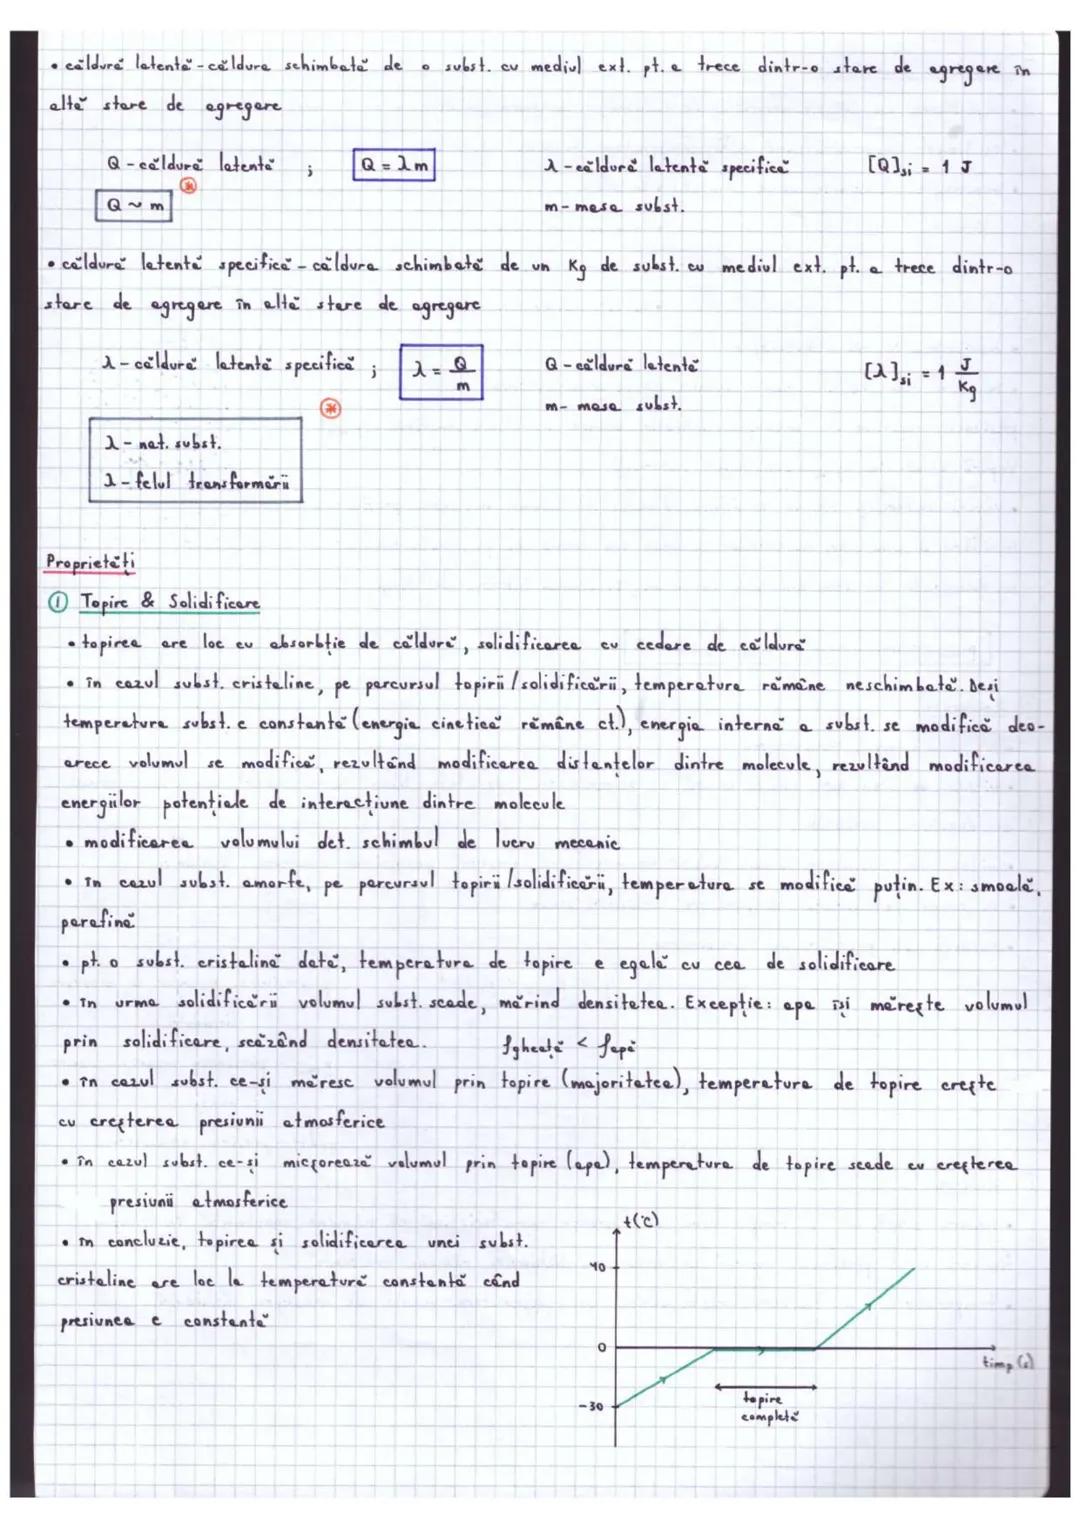 • căldură latentă - căldura schimbată de o subst. cu mediul ext. pt. a trece dintr-o stare de agregare în
altă stare de agregare
Q - căldură latentă ; Q = λm λ - căldură latentă specifică [Q]si = 1 J
Q ~ m * m - masa subst.
• căldură latentă specifică - căldura schimbată de un Kg de subst. cu mediul ext. pt. a trece dintr-o
stare de agregare în altă stare de agregare
λ - căldură latentă specifică ; λ = Q/m Q - căldură latentă [λ]si = 1 J/Kg
* m - masa subst.
λ - nat. subst.
λ - felul transformării
Proprietăți
① Topire & Solidificare
• topirea are loc cu absorbție de căldură, solidificarea cu cedare de căldură
• în cazul subst. cristaline, pe parcursul topirii/solidificării, temperatura rămâne neschimbată. Deși
temperatura subst. e constantă (energia cinetică rămâne ct.), energia internă a subst. se modifică deo-
arece volumul se modifică, rezultând modificarea distanțelor dintre molecule, rezultând modificarea
energiilor potențiale de interacțiune dintre molecule
• modificarea volumului det. schimbul de lucru mecanic
• în cazul subst. amorfe, pe parcursul topirii/solidificării, temperatura se modifică puțin. Ex: smoală,
parafină
• pt. o subst. cristalină dată, temperatura de topire e egală cu cea de solidificare
• în urma solidificării volumul subst. scade, mărind densitatea. Excepție: apa își mărește volumul
prin solidificare, scăzând densitatea. ρgheață < ρapă
• în cazul subst. ce-și măresc volumul prin topire (majoritatea), temperatura de topire crește
cu creșterea presiunii atmosferice
• în cazul subst. ce-și micșorează volumul prin topire (apa), temperatura de topire scade cu creșterea
presiunii atmosferice
• în concluzie, topirea și solidificarea unei subst.
cristaline are loc la temperatură constantă când
presiunea e constantă
t(°C)
40
0
timp (s)
-30
topire
completă